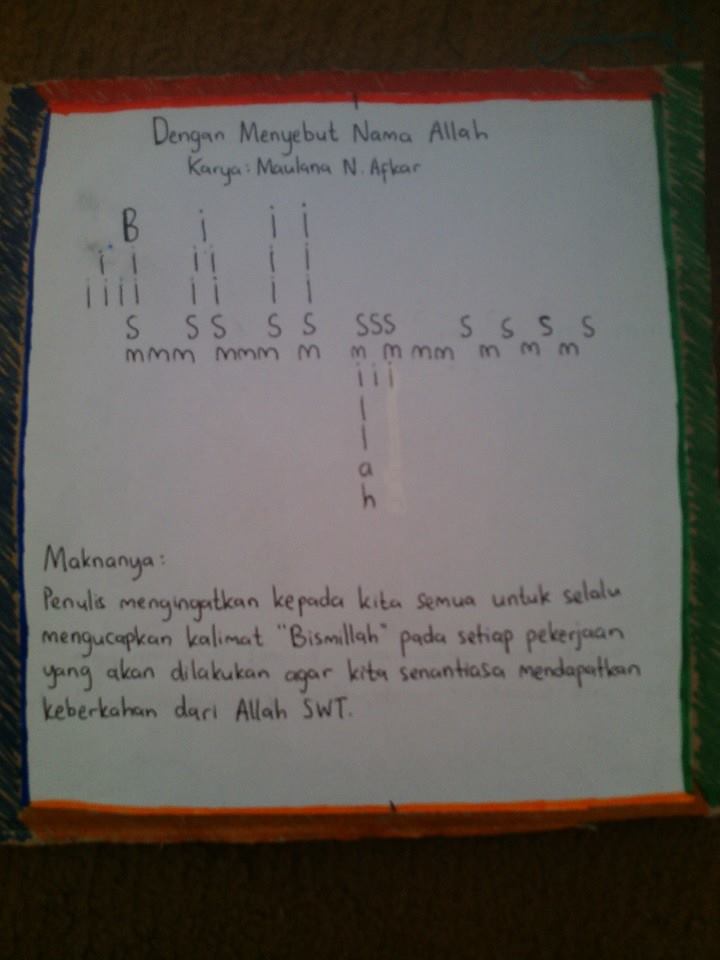 Dengan Menyebut Nama Allah
Karya: Maulana N. Afkar
B i i i
i i i i i i
i i i i i i i i
S S S S S SSS S S S S
mmm mmm m m m mm m m m
i i i
l
l
a
h
Maknanya:
Penulis mengingatkan kepada kita semua untuk selalu
mengucapkan kalimat "Bismillah" pada setiap pekerjaan
yang akan dilakukan agar kita senantiasa mendapatkan
keberkahan dari Allah SWT.